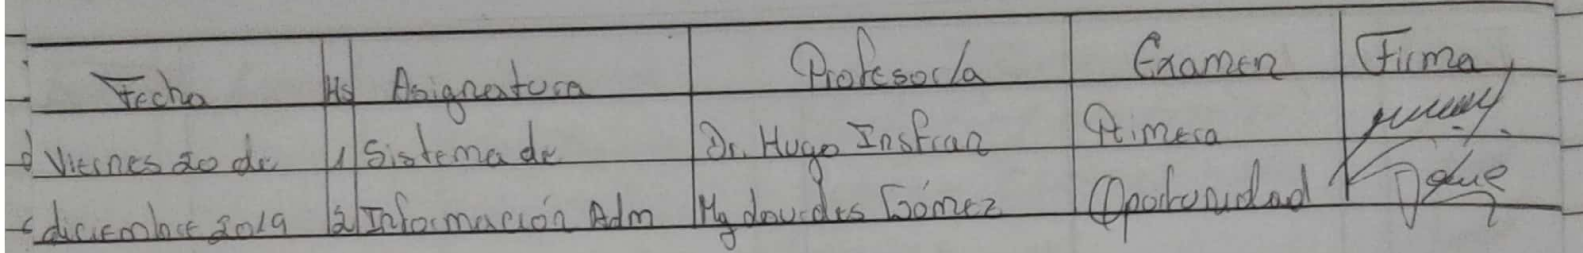 Fecha Hs Asignatura Profesor/a Examen Firma
Viernes 20 de 1 Sistema de Dr. Hugo Insfran Primera
diciembre 2019 2 Información Adm Mg Lourdes Gómez Oportunidad